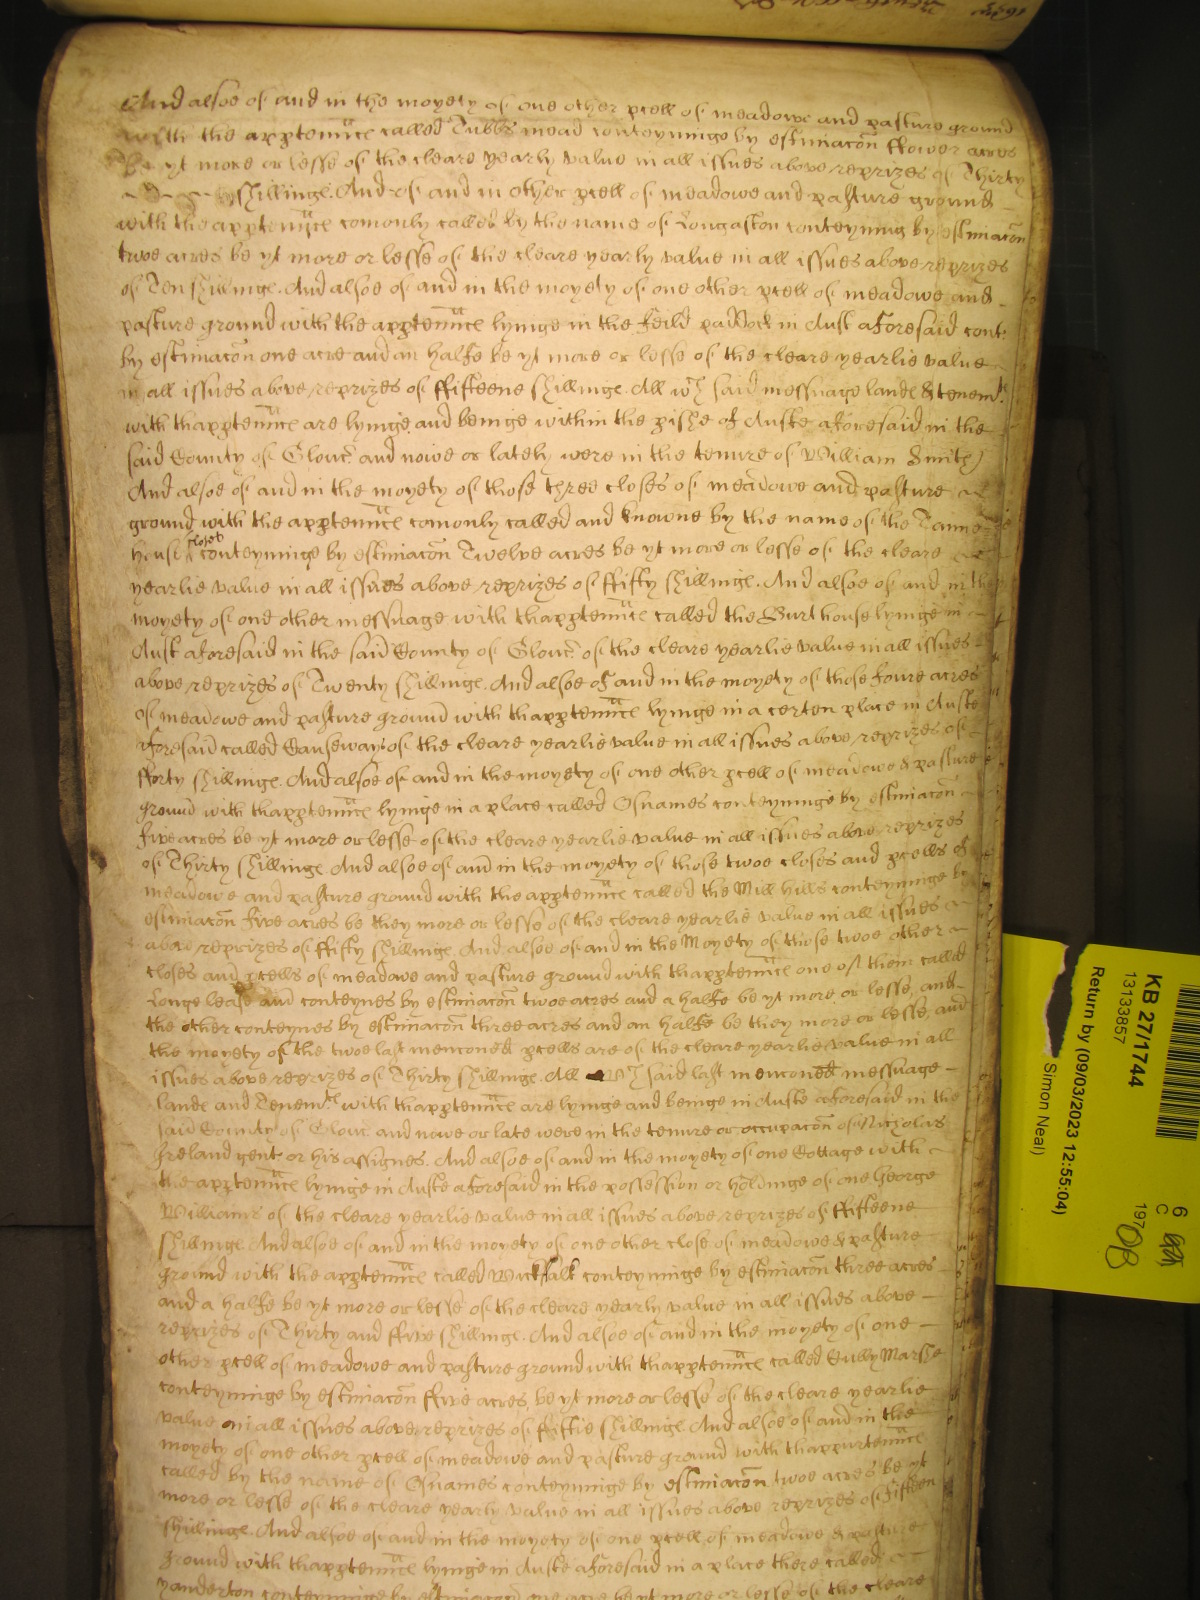 And alsoe of and in the moyety of one other pcell of meadowe and pasture ground
with the apptennce called Tubbs mead conteyninge by estimacon ffower acres
be yt more or lesse of the cleare yearly value in all issues above reprizes of Thirty
shillinge. And of and in other pcell of meadowe and pasture ground
with the apptennce comonly called by the name of Longaston conteyning by estimacon
twoe acres be yt more or lesse of the cleare yearly value in all issues above reprizes
of Ten shillinge. And alsoe of and in the moyety of one other pcell of meadowe and
pasture ground with the apptennce lyinge in the feild paddock in Aust aforesaid cont:
by estimacon one acre and an halfe be yt more or lesse of the cleare yearlie value
in all issues above reprizes of ffifteene shillinge. All wch said messuage lande & tenemte
with thapptennce are lyinge and beinge within the pishe of Auste aforesaid in the
said County of Glouc and nowe or lately were in the tenure of William Smith
And alsoe of and in the moyety of those three closes of meadowe and pasture
ground with the apptennce comonly called and knowne by the name of the Taine
house closes conteyninge by estimacon Twelve acres be yt more or lesse of the cleare
yearlie value in all issues above reprizes of ffifty shillinge. And alsoe of and in the
moyety of one other messuage with thapptennce called the Burt house lyinge in
Aust aforesaid in the said County of Glouc of the cleare yearlie value in all issues
above reprizes of Twenty shillinge. And alsoe of and in the moyety of those foure acres
of meadowe and pasture ground with thapptennce lyinge in a certen place in Auste
aforesaid called Causeways of the cleare yearlie value in all issues above reprizes of
fforty shillinge. And alsoe of and in the moyety of one other pcell of meadowe & pasture
ground with thapptennce lyinge in a place called Osnames conteyninge by estimacon
five acres be yt more or lesse of the cleare yearlie value in all issues above reprizes
of Thirty shillinge And alsoe of and in the moyety of those twoe closes and pcells of
meadowe and pasture ground with the apptennce called the Mill hills conteyninge by
estimacon five acres be they more or lesse of the cleare yearlie value in all issues
above reprizes of ffifty shillinge. And alsoe of and in the Moyety of those twoe other
closes and pcells of meadowe and pasture ground with thapptennce one of them called
Longe lease and conteynes by estimacon twoe acres and a halfe be yt more or lesse, and
the other conteynes by estimacon three acres and an halfe be they more or lesse, and
the moyety of the twoe last menconed pcells are of the cleare yearlie value in all
issues above reprizes of Thirty shillinge. All wch said last menconed messuage
lande and Tenemte with thapptennce are lyinge and beinge in Auste aforesaid in the
said County of Glouc and nowe or late were in the tenure or occupacon of Nicholas
Ireland gent or his assignes. And alsoe of and in the moyety of one Cottage with
the apptennce lyinge in Auste aforesaid in the possession or holdinge of one George
Williams of the cleare yearlie value in all issues above reprizes of ffifteene
shillinge And alsoe of and in the moyety of one other close of meadowe & pasture
ground with the apptennce called conteyninge by estimacon three acres
and a halfe be yt more or lesse of the cleare yearly value in all issues above
reprizes of Thirty and ffive shillinge. And alsoe of and in the moyety of one
other pcell of meadowe and pasture ground with thapptennce called Cully Marshe
conteyninge by estimacon ffive acres, be yt more or lesse of the cleare yearlie
value in all issues above reprizes of ffiftie shillinge And alsoe of and in the
moyety of one other pcell of meadowe and pasture ground with thappurtennce
called by the name of Osnames conteyninge by estimacon twoe acres be yt
more or lesse of the cleare yearly value in all issues above reprizes of fifteen
shillinge. And alsoe of and in the moyety of one pcell of meadowe & pasture
ground with thapptennce lyinge in Auste aforesaid in a place there called
yanderton conteyninge by estimacon one acre be yt more or lesse of the cleare
KB 27/1744
13133857
Return by (09/03/2023 12:55:04)
Simon Neal)
6
C
197